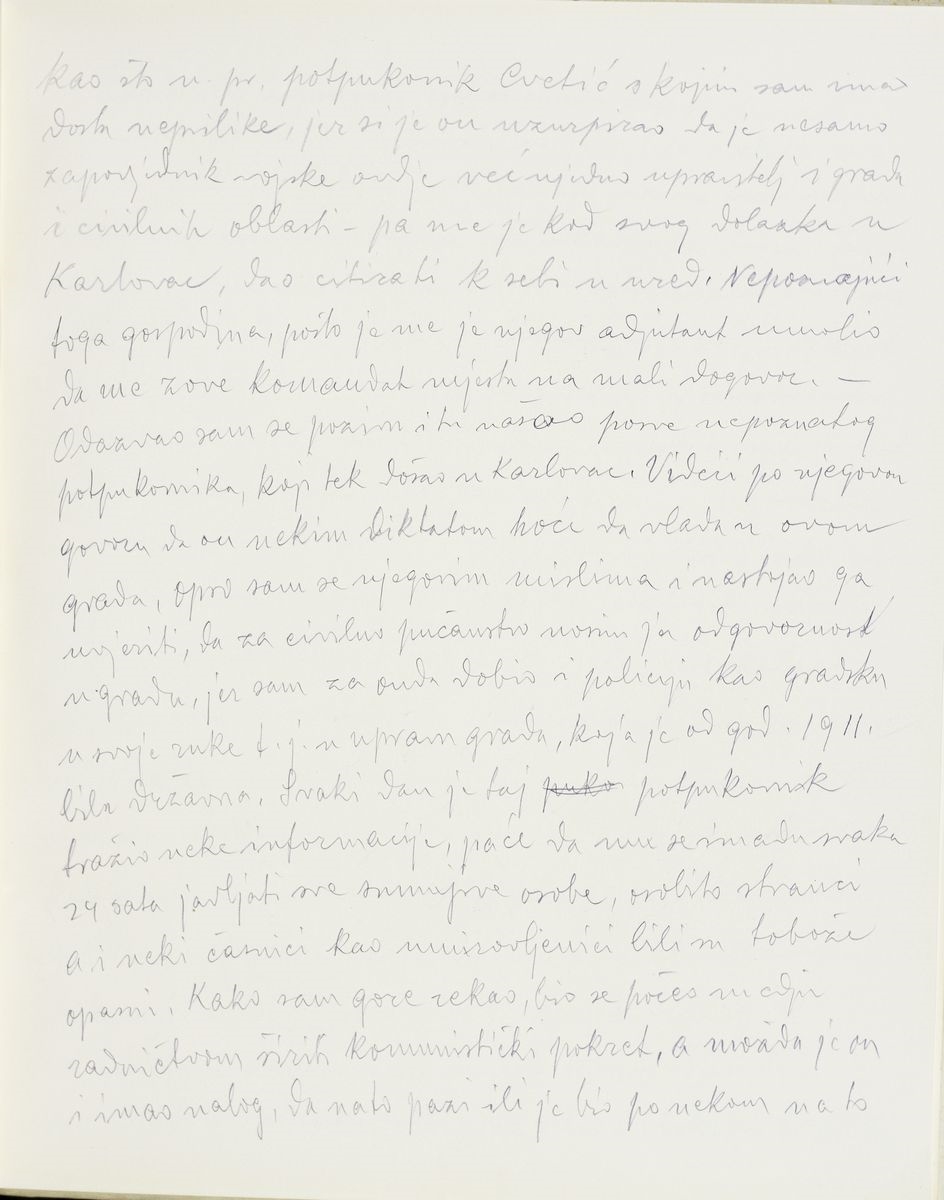 kao što n. pr. potpukovnik Cvetić s kojim sam imao
dosta neprilike, jer si je on uzurpirao da je nesamo
zapovjednik vojske ovdje već ujedno upravitelj i grada
i civilnih oblasti – pa me je kod svog dolazka u
Karlovac, dao citirati k sebi u ured. Nepoznajući
toga gospodina, pošto je me je njegov adjutant umolio
da me zove komandat mjesta na mali dogovor. –
Odazvao sam se pozivu i tu našao posve nepoznatog
potpukovnika, koji tek došao u Karlovac. Videći po njegovom
govoru da on nekim diktatom hoće da vlada u ovom
gradu, opro sam se njegovim mislima i nastojao ga
uvjeriti, da za civilno pučanstvo nosim ja odgovornost
u gradu, jer sam za onda dobio i policiju kao gradsku
u svoje ruke t. j. u upravu grada, koja je od god. 1911.
bila državna. Svaki dan je taj puko potpukovnik
tražio neke informacije, pače da mu se imadu svaka
24 sata javljati sve sumnjive osobe, osobito stranci
a i neki časnici kao umirovljenici bili su tobože
opasni. Kako sam gore rekao, bio se počeo medju
radničtvom širiti komunistički pokret, a možda je on
i imao nalog, da na to pazi ili je bio po nekom na to